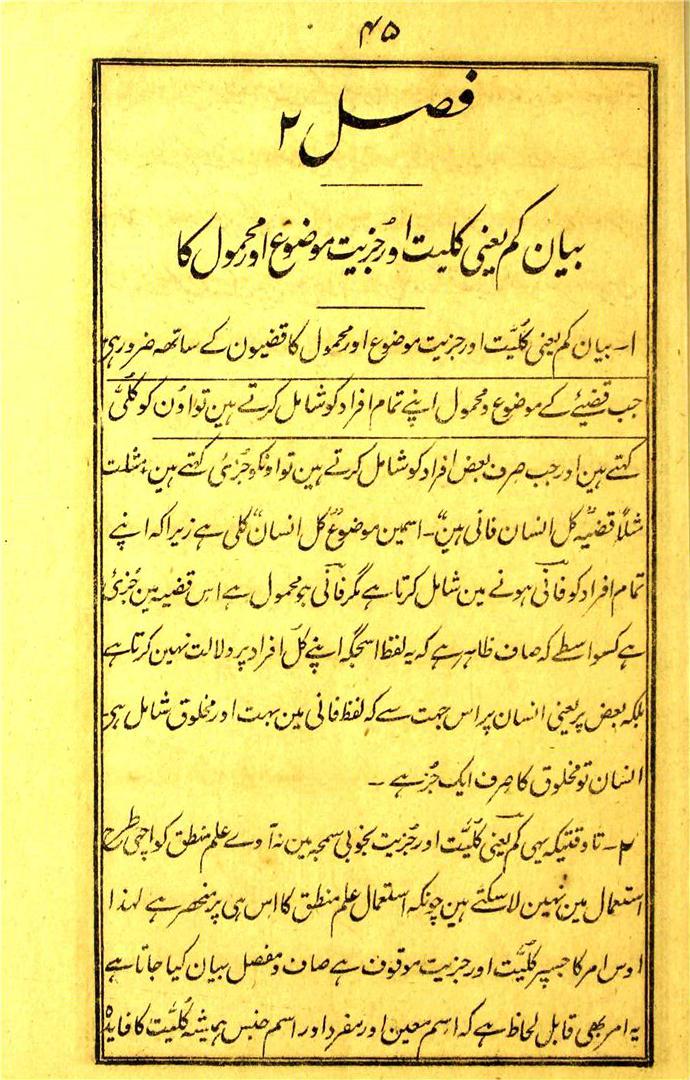 ۴۵
فصل ۲
بیان کم یعنی کلیت اور جُزیت موضوع اور محمول کا
۱۔ بیان کم یعنی کُلیَّت اور جزیت موضوع اور محمول کا قضیون کے ساتھہ ضرور ہی
جب قضیئے کے موضوع و محمول اپنے تمام افراد کو شامل کرتے ہین تو اوُن کو کُلّی
کہتے ہین اور جب صرف بعض افراد کو شامل کرتے ہین تو اونکو جُزئ کہتے ہین
مثلاً قضیہ کل انسان فانی ہین۔ اسمین موضوع کل انسان کلی ہے زیرا کہ اپنے
تمام افراد کو فانی ہونے مین شامل کرتا ہے مگر فانی جو محمول ہے اس قضیہ مین جُزئ
ہے کسواسطے کہ صاف ظاہر ہے کہ یہ لفظ اسجگہ اپنے کل افراد پر دلالت نہین کرتا ہے
بلکہ بعض پر یعنی انسان پر اس جہت سے کہ لفظ فانی مین بہت اور مخلوق شامل ہی
انسان تو مخلوق کا صرف ایک جُز ہے ۔
۲۔ تا وقتیکہ یہی کم یعنی کُلیَّت اور جُزیت بخوبی سمجہ مین نہ آوے علم منطق کو اچہی طرح
استعمال مین نہین لا سکتے ہین چونکہ استعمال علم منطق کا اس ہی پر منحصر ہے لہذا
اوس امر کا جسپر کلیَّت اور جزیت موقوف ہے صاف و مفصل بیان کیا جاتا ہے
یہ امر بھی قابل لحاظ ہے کہ اسم معین اور مفرد اور اسم جنس ہمیشہ کُلیَّت کا فایدہ